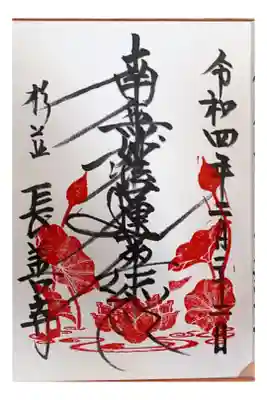 令和四年二月二十二日
南無妙法蓮華経
杉並
長善寺